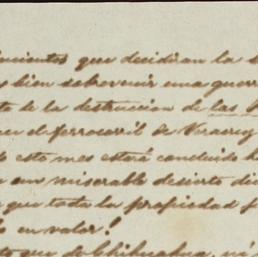 que decidiran la
bien sobrevenir una guerra
de la destruccion de las
de ferrocarril de Veracruz
este mes estará concluido
un miserable desierto
que toda la propiedad
en valor!
que de Chihuahua, ni